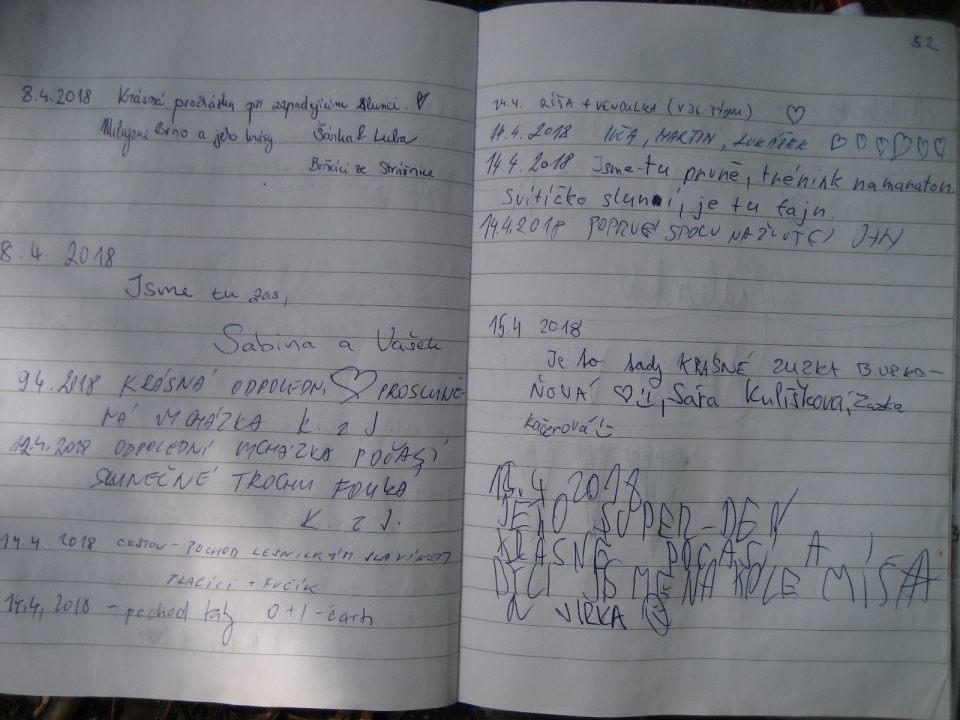 8.4.2018 Krásná procházka při zapadajícím slunci ♥
Milujeme Brno a jeho krásy Šárka & Luba
Brňáci ze Strážnice
8.4. 2018
Jsme tu zas,
Sabina a Vašek
9.4.2018 KRÁSNÁ ODPOLEDNÍ ♡ PROSLUNĚ-
NÁ VYCHÁZKA K. z J.
12.4.2018 ODPOLEDNÍ VYCHÁZKA POČASÍ
SLUNEČNÉ TROCHU FOUKÁ
K z J.
14.4 2018 CESTOU - POCHOD LESNICKÝM SLAVÍNEM
+ FUČÍK
14.4. 2018 - pochod tudy 0+1 - čarti
52
14.4. RÍŠA + VENDULKA (V 36. TÝDNU) ♡
14.4.2018 MARTIN, LUKÁŠEK ♡♡♡♡♡♡
14.4.2018 Jsme tu prvně, trénink na maraton.
Svítíčko sluní, je tu fajn.
14.4.2018 POPRVÉ SPOLU NA
15.4 2018
Je to tady KRÁSNÉ ZUZKA BURKO-
ŇOVÁ ♡, Sára Kulíšková, Zuzka
Kočerová
15.4 2018
JE TO SUPER-DEN
KRÁSNÉ POČASÍ A
DĚLI JSME NA KOLE MÍŠA
VIRKA